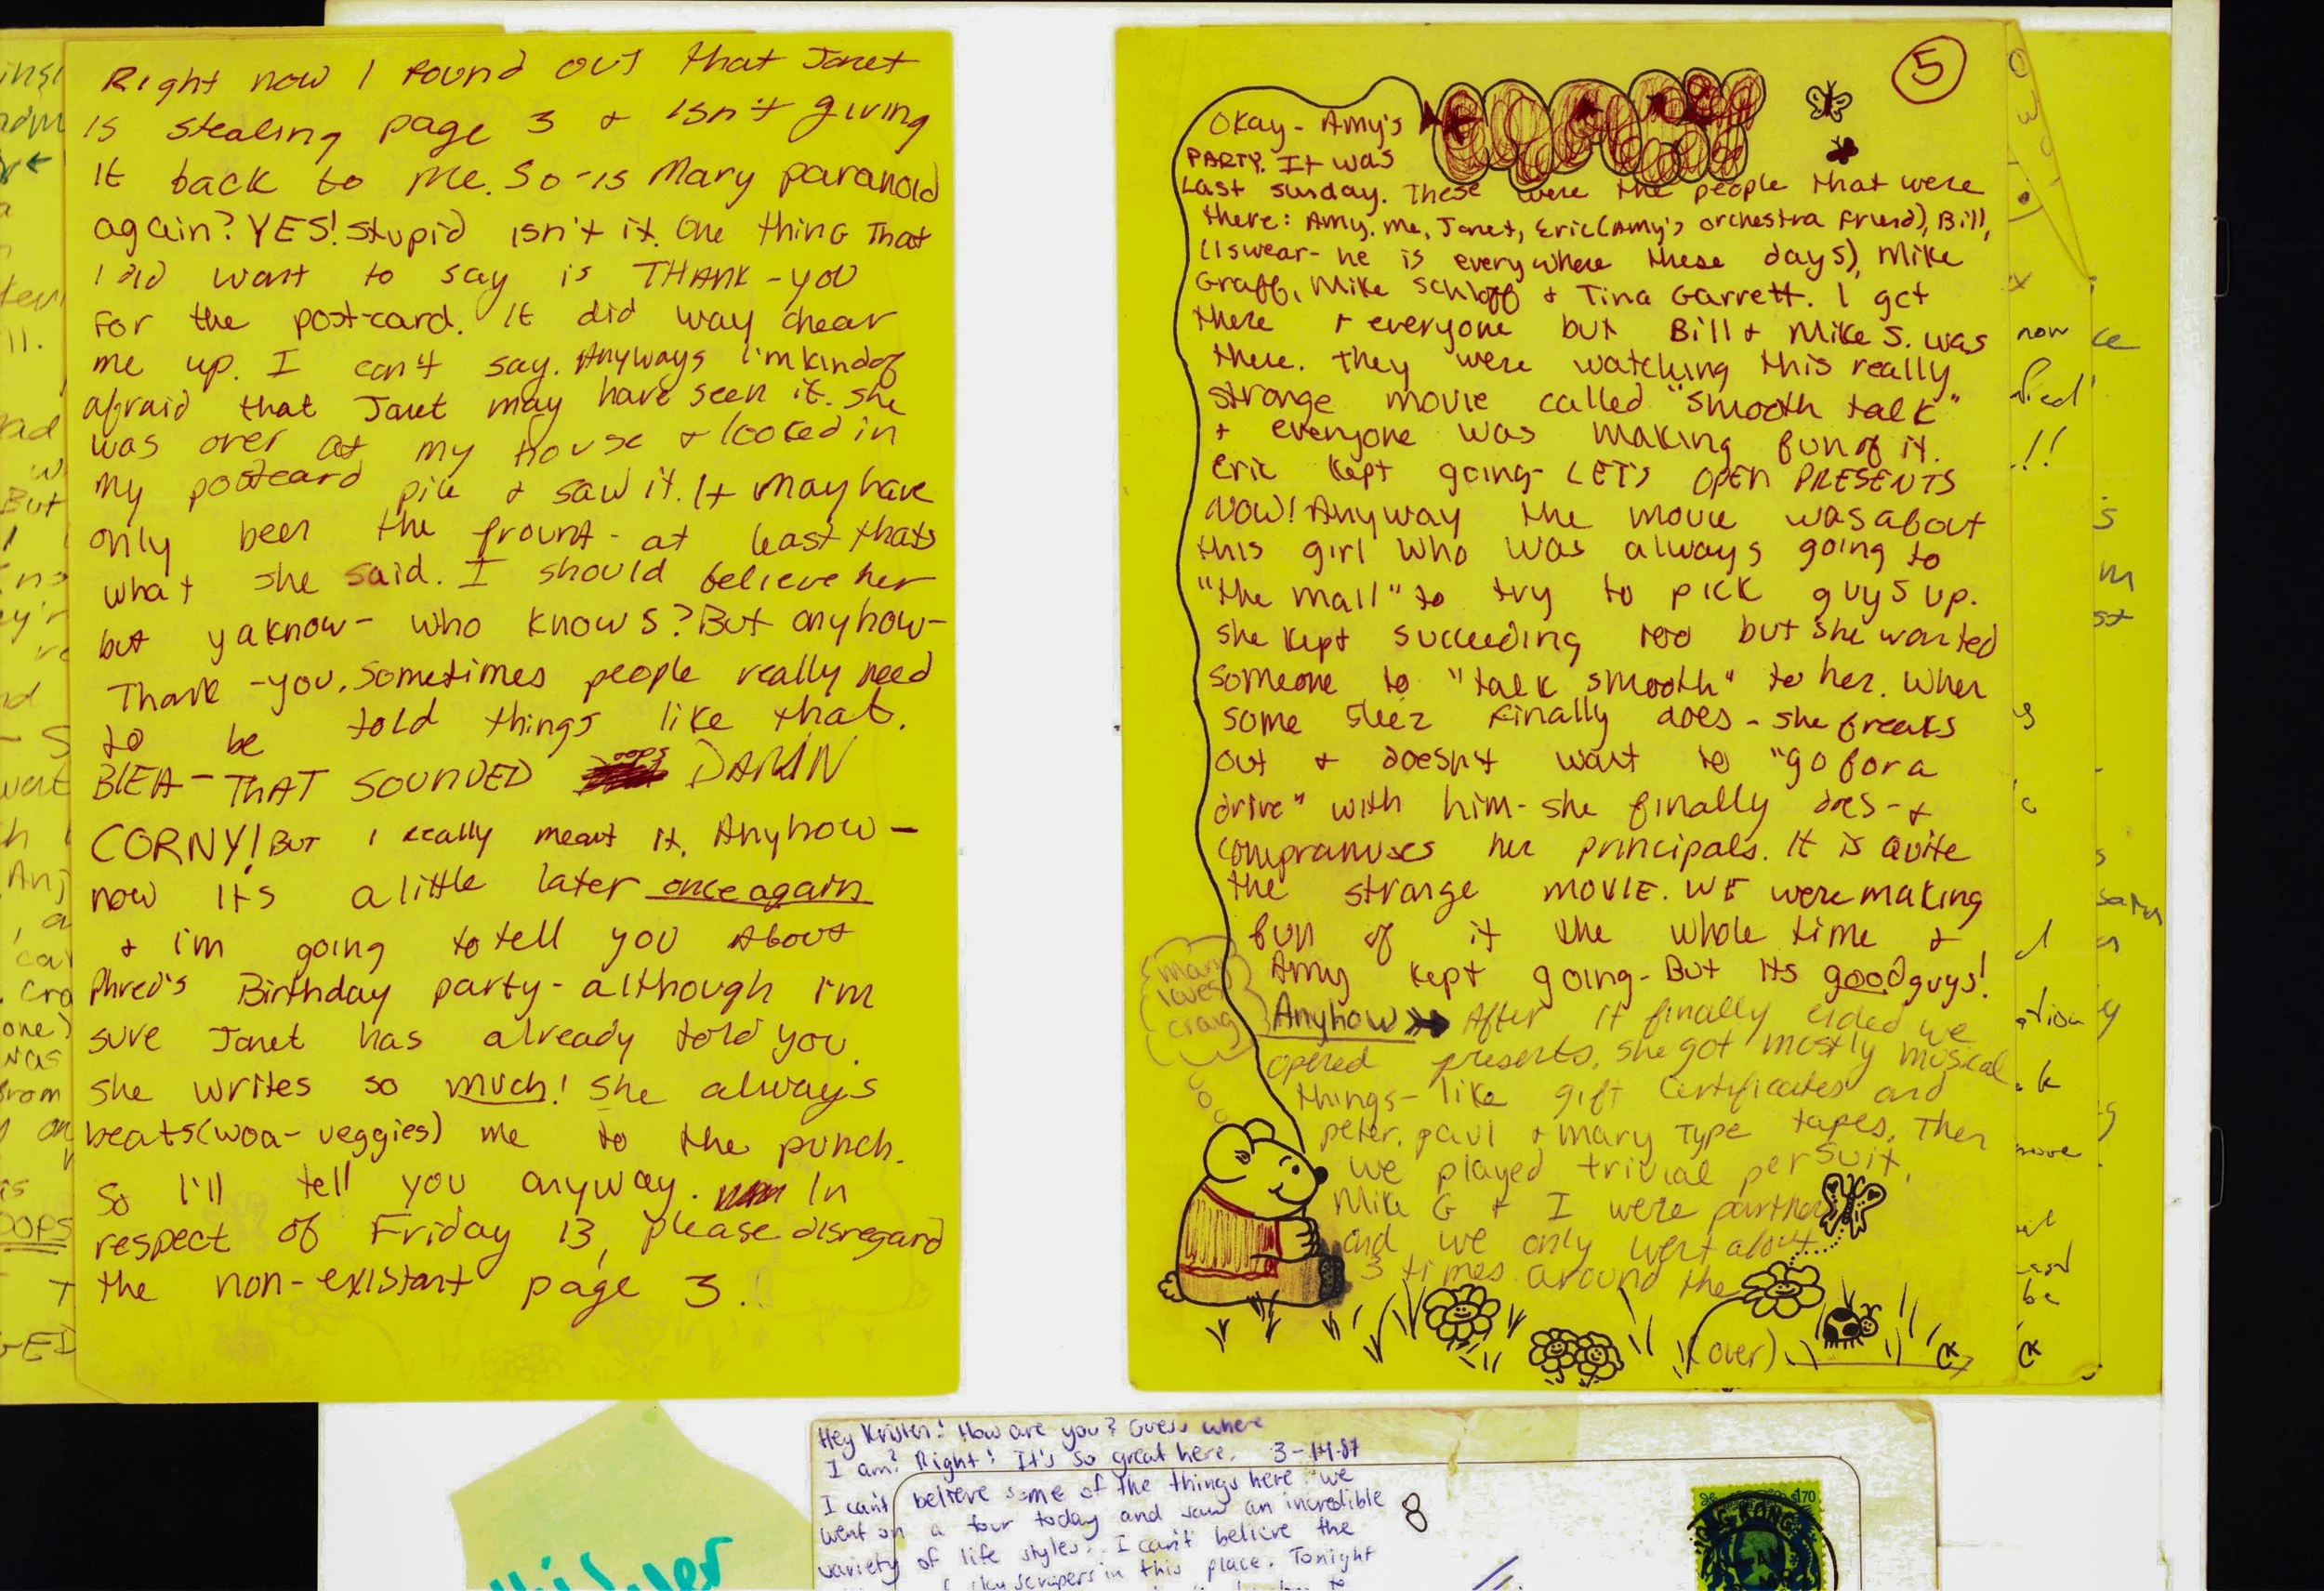 Right now I found out that Janet
is stealing page 3 + isn't giving
it back to me. So-is Mary paranoid
again? YES! Stupid isn't it. One thing that
I did want to say is THANK-YOU
for the post-card. It did way chear
me up. I can't say. Anyways I'm kindof
afraid that Janet may have seen it. she
was over at my house + looked in
my postcard pile + saw it. It may have
only been the frount - at least thats
what she said. I should believe her
but yaknow - who knows? But anyhow-
Thank -you. Sometimes people really need
to be told things like that.
oops
BLEA - THAT SOUNDED DAMN
CORNY! BUT I really meant it. Anyhow -
now its a little later once again
+ i'm going to tell you About
Phred's Birthday party - although I'm
sure Janet has already told you.
she writes so much! She always
beats (woa - veggies) me to the punch.
So I'll tell you anyway. In
respect of Friday 13, please disregard
the non-existant page 3.
5
Okay - Amy's
PARTY. It was
Last sunday. These were the people that were
there: Amy, me, Janet, Eric (Amy's orchestra friend), Bill,
(I swear - he is everywhere these days), Mike
Graff, Mike Schloff + Tina Garrett. I get
there + everyone but Bill + Mike S. was
there. they were watching this really
strange movie called "smooth talk"
+ everyone was making fun of it.
Eric kept going - LET'S OPEN PRESENTS
NOW! Anyway the movie was about
this girl who was always going to
"the mall" to try to pick guys up.
she kept succeeding too but she wanted
someone to "talk smooth" to her. When
some sleez finally does - she freaks
out + doesn't want to "go for a
drive" with him - she finally does - +
compramises her principals. It is Quite
the strange MOVIE. WE were making
fun of it the whole time +
Amy kept going - But its good guys!
mary
loves
craig
Anyhow After it finally ended we
opened presents. she got mostly musical
things - like gift certificates and
peter, paul + mary Type tapes. Then
we played trivial persuit.
Mike G + I were partners
and we only went about
3 times around the
(over)
now
!!
move
be
Hey Kristen! How are you? Guess where
I am? Right! It's so great here. 3-14-87
I can't believe some of the things here. we
went on a tour today and saw an incredible
variety of life styles. I can't believe the
skyscrapers in this place. Tonight
8
$1.70
HONG KONG